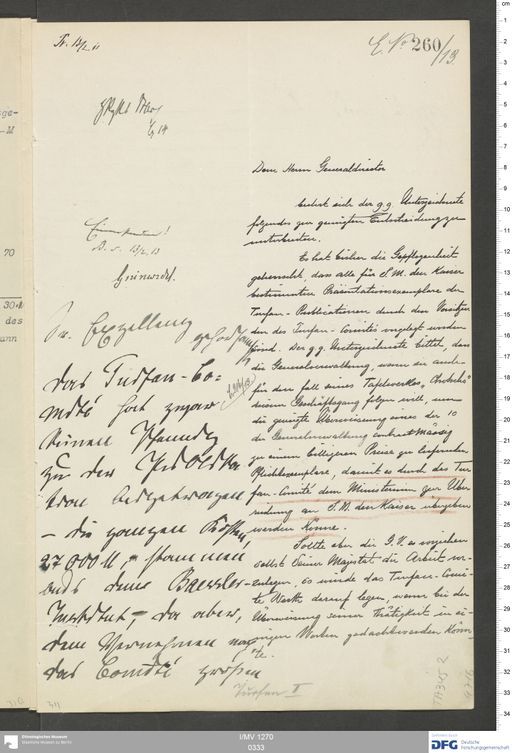 Tr. 13/2 11
E. No 260/13.
Dem Herrn Generaldirector
beehrt sich der g.g. Unterzeichnete
folgendes zur geneigten Entscheidung zu
unterbreiten.
Es hat bisher die Gepflogenheit
geherrscht, dass alle für S. M. den Kaiser
bestimmten Präsentationsexemplare der
Turfan-Publicationen durch den Vorsitzen
den des Turfan-Comités vorgelegt worden
sind. Der g.g. Unterzeichnete bittet, dass
die Generalverwaltung, wenn sie auch
für den Fall seines Tafelwerkes „Chotscho"
diesem Geschäftsgang folgen will, um
die geneigte Überweisung eines der 10
der Generalverwaltung contractmässig
zu einem billigeren Preise zu liefernden
Pflichtexemplare, damit es durch das Tur
fan-Comité dem Ministerium zur Über
sendung an S. M. den Kaiser übergeben
werden könne.
Sollte aber die G. V. es vorziehen
selbst Seiner Majestät die Arbeit vor-
zulegen, so würde das Turfan-Comi-
té Werth darauf legen, wenn bei der
Überweisung seiner Thätigkeit in ei-
nigen Worten gedacht werden könn
te.
B. v. 13/2. 13
Grünwedel.
Ew. Exzellenz gehorsamst
das Turfan-Co=
mité hat zwar
keinen Pfennig
zu der
– die ganzen Kosten,
27000 M, – stammen
aus dem Baessler-
Institut –, da aber,
dem Vernehmen nach
das Comité großen
Turfan II
TA 345 2
70
des
I/MV 1270
0333
Ethnologisches Museum
Staatliche Museen zu Berlin
DFG Deutsche
Forschungsgemeinschaft